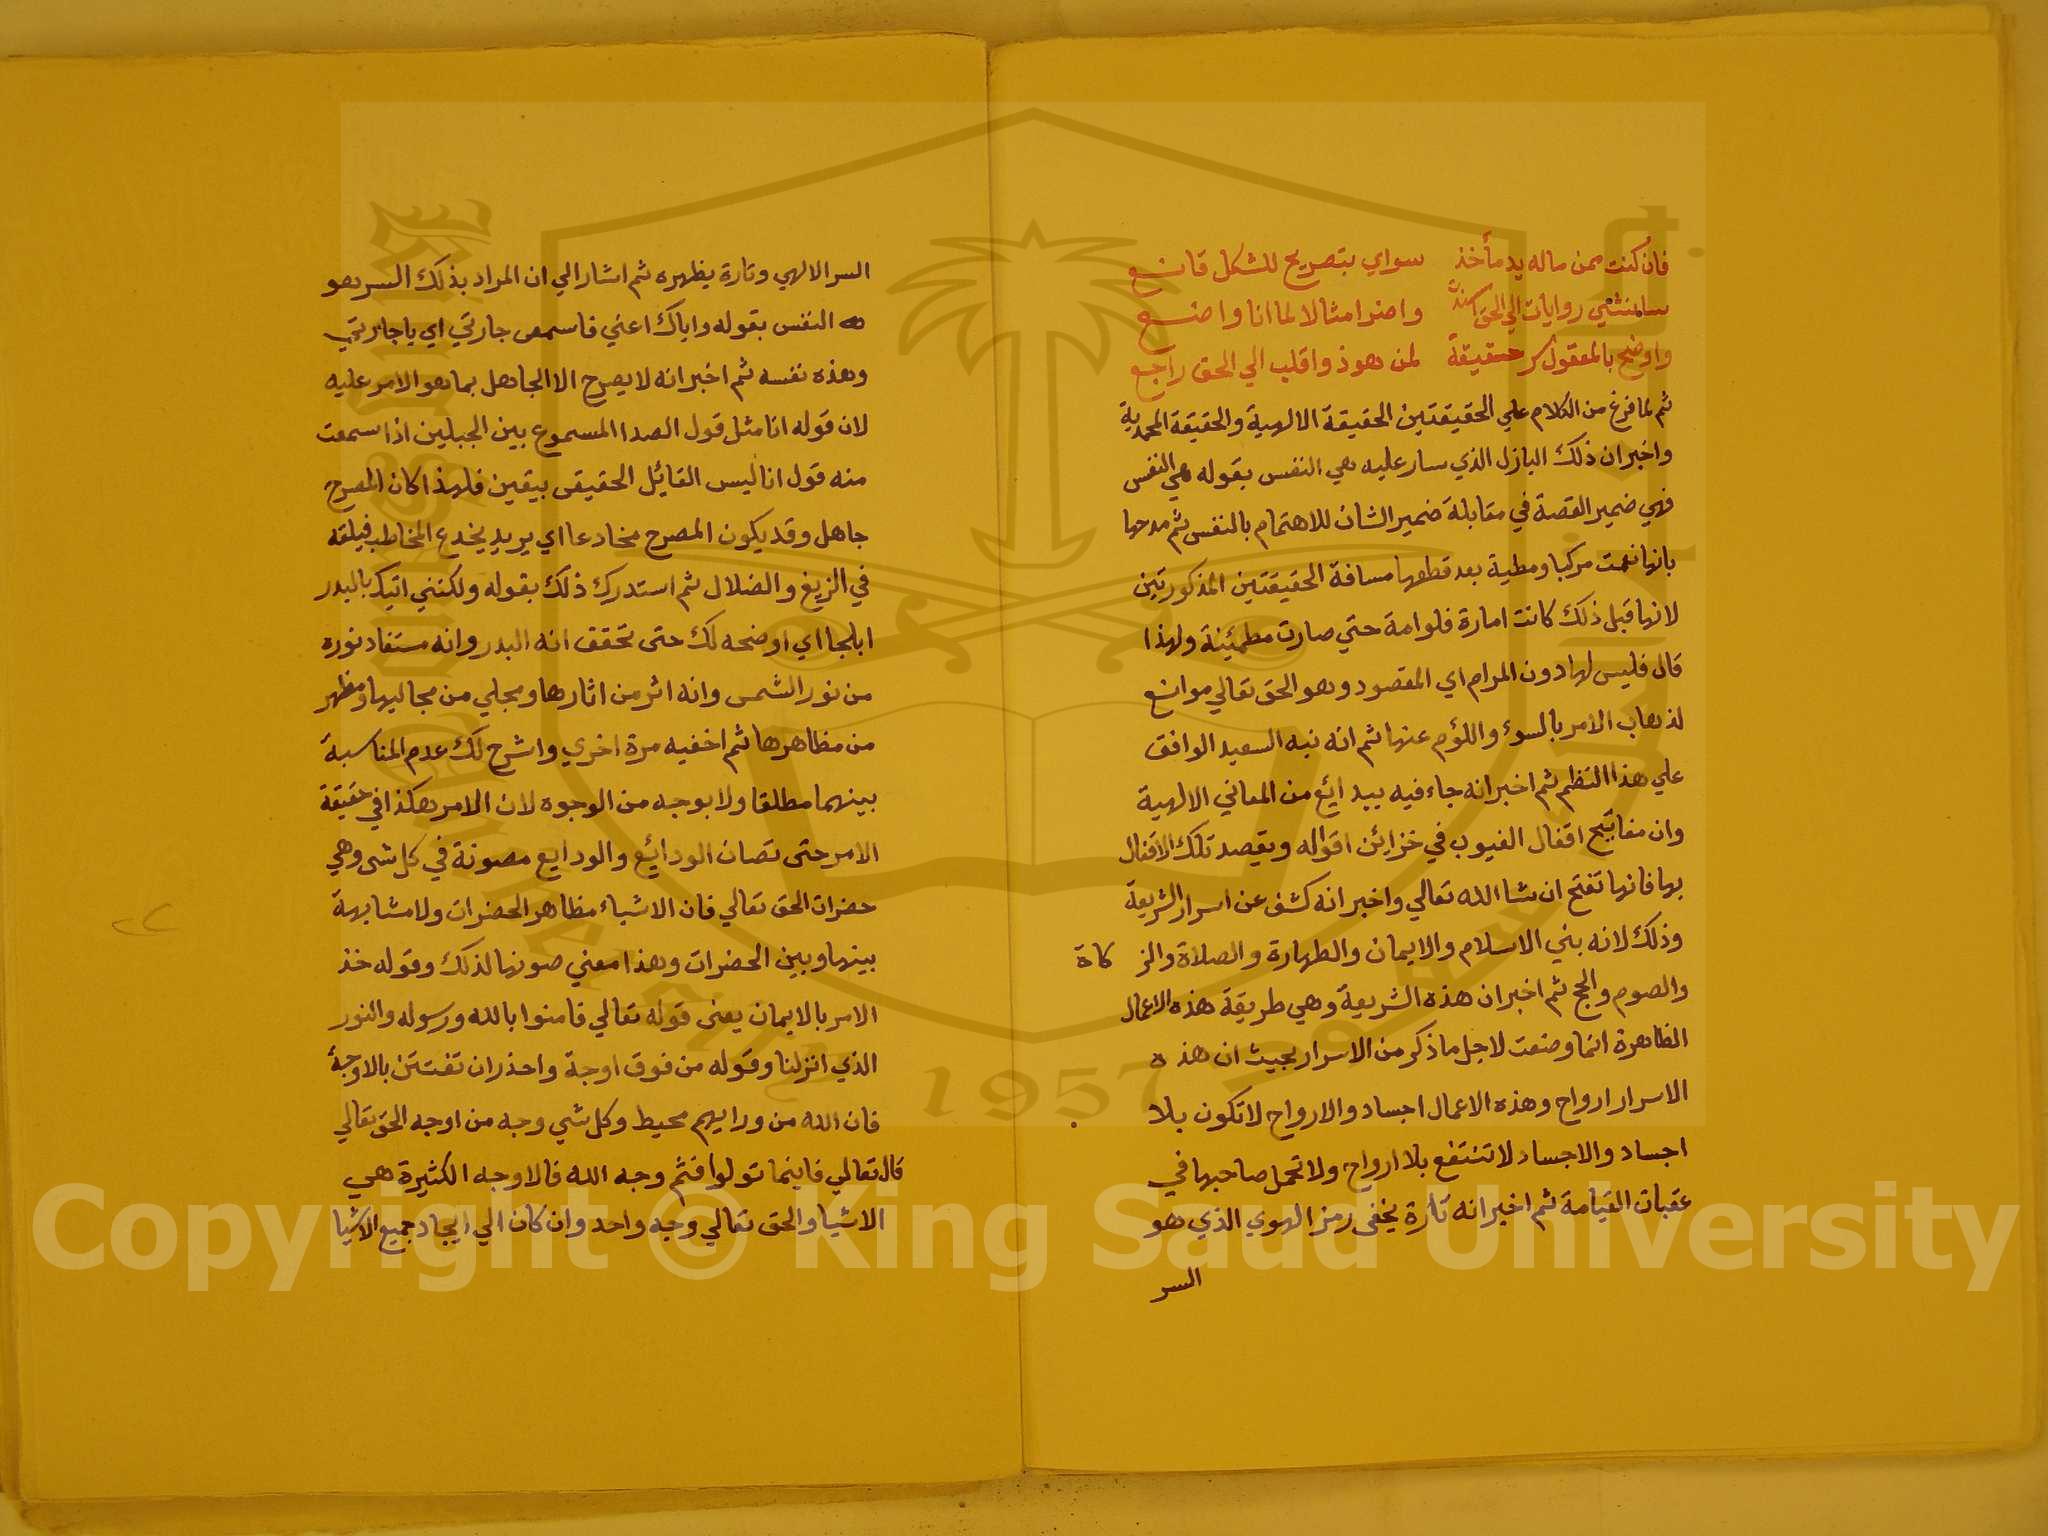 فان كنت ممن ماله يد مأخذ سواي بتصريح للشكل قانع
سامنشي روايات الي الحق اسندت واضرا مثالا لما انا واضع
واوضح بالمعقول سر حقيقة لمن هو ذو اقلب الي الحق راجع
ثم لما فرغ من الكلام علي الحقيقتين الحقيقة الالهية والحقيقة المحمدية
واخبر ان ذلك البازل الذي سار عليه هي النفس بقوله هي النفس
فهي ضمير القصة في مقابلة ضمير الشان للاهتمام بالنفس ثم مدحها
بانها نعمت مركبا ومطية بعد قطعها مسافة الحقيقتين المذكورتين
لانها قبل ذلك كانت امارة فلوامة حتي صارت مطمئنة ولهذا
قال فليس لها دون المرام اي المقصود وهو الحق تعالي موانع
لذهاب الامر بالسوء واللؤم عنها ثم انه نبه السعيد الوافق
علي هذا النظم ثم اخبر انه جاء فيه ببدائع من المعاني الالهية
وان مفاتيح اقفال الغيوب في خزائن اقواله وتقصد تلك الاقفال
بها فانها تفتح ان شا الله تعالي واخبر انه كشف عن اسرار الشريعة
وذلك لانه بني الاسلام والايمان والطهارة والصلاة والز كاة
والصوم والحج ثم اخبر ان هذه الشريعة وهي طريقة هذه الاعمال
الظاهرة انما وضعت لاجل ما ذكر من الاسرار بحيث ان هذه
الاسرار ارواح وهذه الاعمال اجساد والارواح لا تكون بلا
اجساد والاجساد لا تنتفع بلا ارواح ولا تحمل صاحبها في
عقبات القيامة ثم اخبر انه تارة يخفى رمز الهوي الذي هو
السر
السر الالهي وتارة يظهره ثم اشار الي ان المراد بذلك السر هو
هه النفس بقوله واياك اعني فاسمعى جارتي اي يا جارتي
وهذه نفسه ثم اخبر انه لا يصرح الا الجاهل بما هو الامر عليه
لان قوله انا مثل قول الصدا المسموع بين الجبلين اذا سمعت
منه قول انا ليس القائل الحقيقى بيقين فلهذا كان المصرح
جاهل وقد يكون المصرح مخادعا اي يريد يخدع المخاطب فيلقه
في الزيغ والضلال ثم استدرك ذلك بقوله ولكنني اتيك بالبدر
ابلجا اي اوضحه لك حتى تحقق انه البدر وانه مستفاد نوره
من نور الشمس وانه اثر من اثارها ومجلي من مجاليها ومظهر
من مظاهرها ثم اخفيه مرة اخري واشرح لك عدم المناسبة
بينهما مطلقا ولا بوجه من الوجوه لان الامر هكذا في حقيقة
الامر حتى تصان الودائع والودايع مصونة في كل شى وهي
حضرات الحق تعالي فان الاشياء مظاهر الحضرات ولا مشابهة
بينها وبين الحضرات وهذا معني صونها لذلك وقوله خذ
الامر بالايمان يعنى قوله تعالي فامنوا بالله ورسوله والنور
الذي انزلنا وقوله من فوق اوجة واحذر ان تفتتن بالاوجة
فان الله من ورايهم محيط وكل شي وجه من اوجه الحق تعالي
قال تعالي فاينما تولوا فثم وجه الله فالاوجه الكثيرة هي
الاشيا والحق تعالي وجه واحد وان كان الي ايجاد جميع الاشيا
1957
Copyright © King Saud University